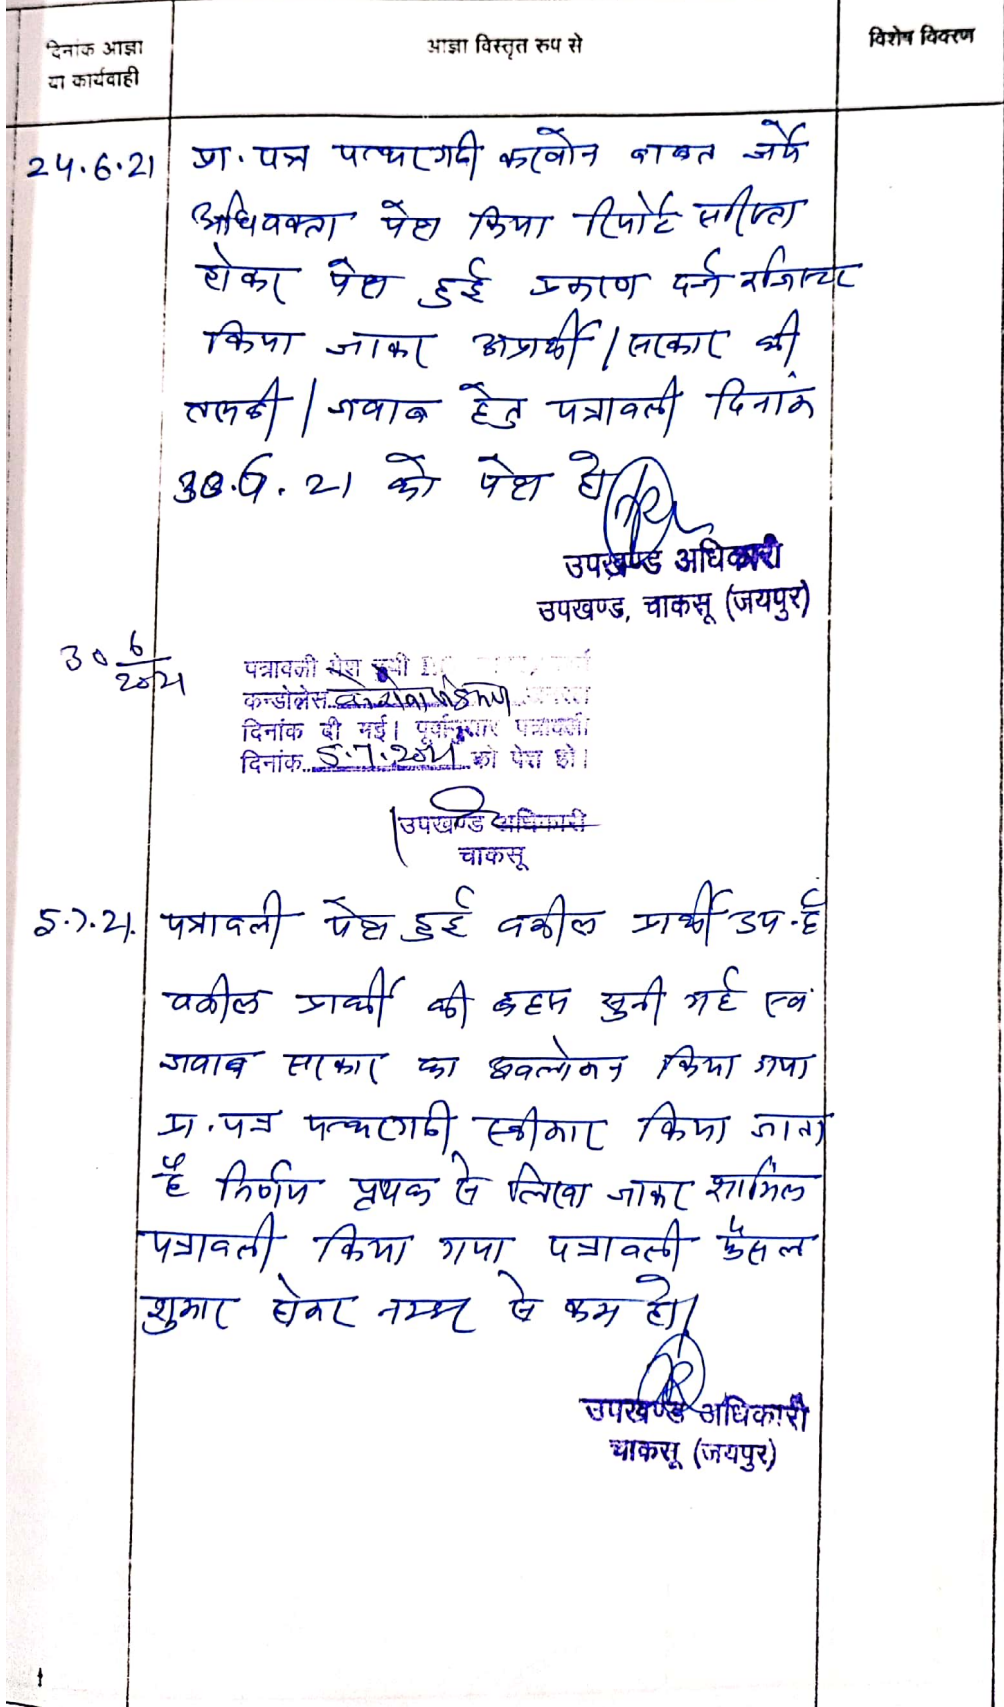 दिनांक आज्ञा
या कार्यवाही
आज्ञा विस्तृत रुप से
विशेष विवरण
24.6.21
प्रा. पत्र पत्थरगढी करवाने बाबत जर्ये
अधिवक्ता पेश किया रिपोर्ट सरिश्ता
होकर पेश हुई प्रकरण दर्ज रजिस्टर
किया जाकर अप्रार्थी / सरकार की
तलबी / जवाब हेतु पत्रावली दिनांक
30.6.21 को पेश हो
उपखण्ड अधिकारी
उपखण्ड, चाकसू (जयपुर)
30 6/2021
पत्रावली पेश हुयी
कन्डोलेंस
दिनांक दी गई। पूर्वानुसार पत्रावली
दिनांक 5.7.2021 को पेश हो।
उपखण्ड अधिकारी
चाकसू
5.7.21.
पत्रावली पेश हुई वकील प्रार्थी उप. है
वकील प्रार्थी की बहस सुनी गई एवं
जवाब सरकार का अवलोकन किया गया
प्रा. पत्र पत्थरगढी स्वीकार किया जाता
है निर्णय पृथक से लिखा जाकर शामिल
पत्रावली किया गया पत्रावली फैसल
शुमार होकर नम्बर से कम हो।
उपखण्ड अधिकारी
चाकसू (जयपुर)